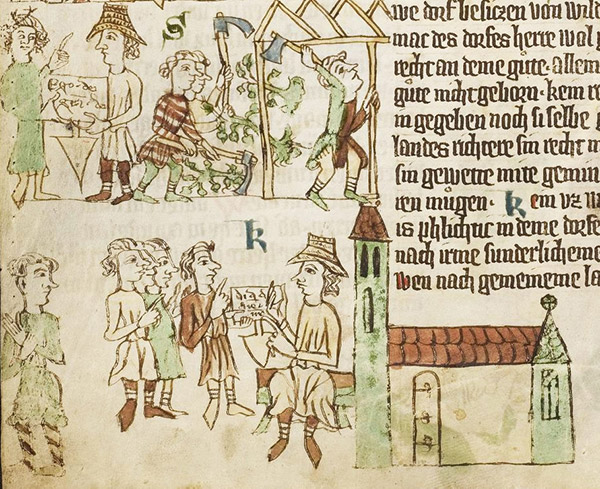 we dorf besiczen von wild
mac des dorfes herre wol
recht an deme gute. allem
gute nicht geborn. kein re
in gegeben noch si selbe
landes richtere sin recht
sin gewette mite gemin
ren mugen. k em vz
is in deme dorfe
nach irme sunderlicheme
wen nach gemememe la
S
Ego de
k